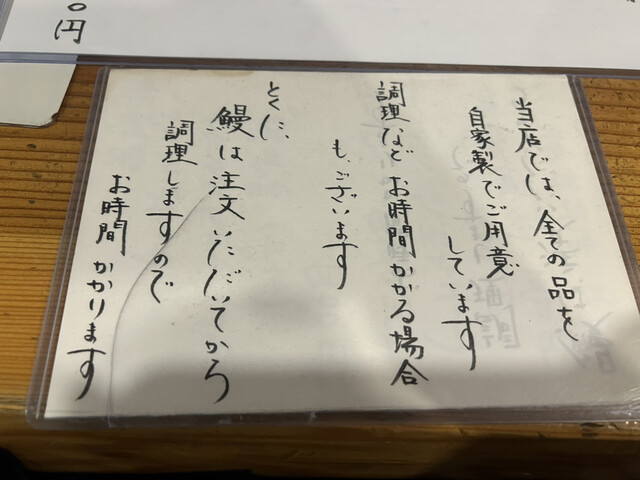 ０円
当店では、全ての品を
自家製でご用意
しています
調理など お時間かかる場合
もございます
とくに、
鰻は注文いただいてから
調理しますので
お時間 かかります